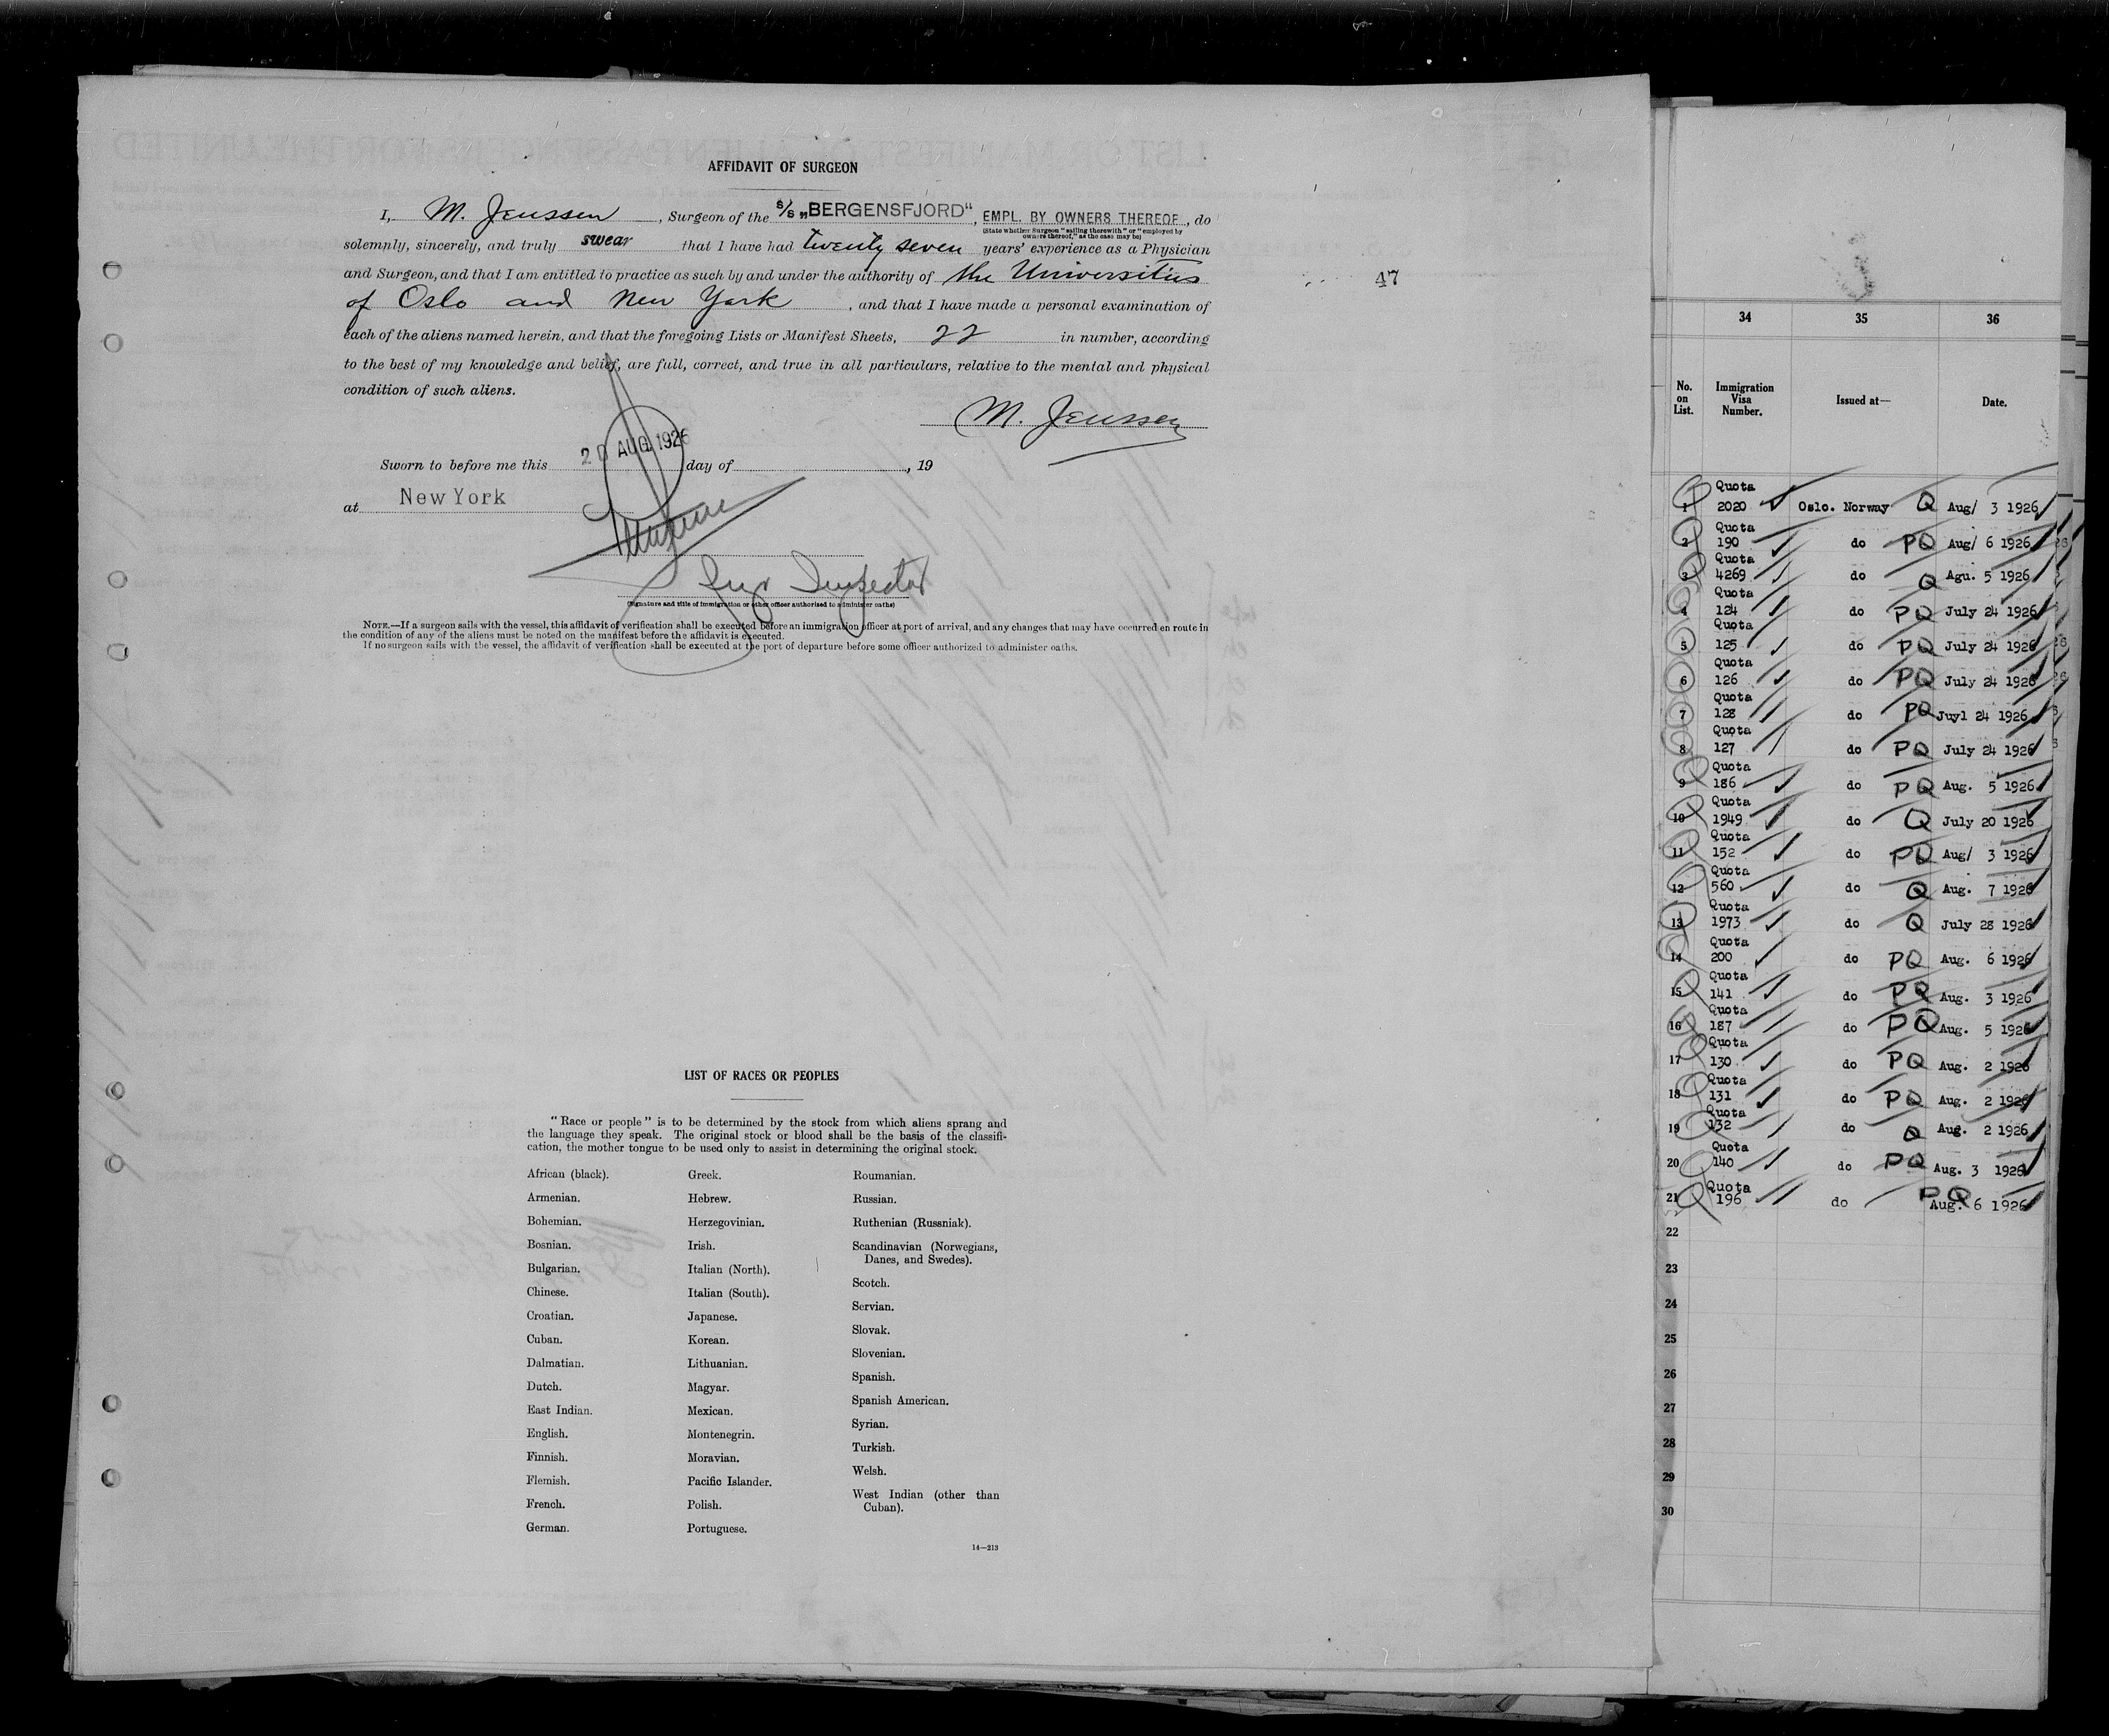 AFFIDAVIT OF SURGEON
I, M. Jenssen, Surgeon of the S/S „BERGENSFJORD", EMPL. BY OWNERS THEREOF, do
(State whether Surgeon "sailing therewith" or "employed by
owners thereof," as the case may be)
solemnly, sincerely, and truly swear that I have had twenty seven years' experience as a Physician
and Surgeon, and that I am entitled to practice as such by and under the authority of the Universities
of Oslo and New York, and that I have made a personal examination of
each of the aliens named herein, and that the foregoing Lists or Manifest Sheets, 22 in number, according
to the best of my knowledge and belief, are full, correct, and true in all particulars, relative to the mental and physical
condition of such aliens.
M. Jenssen
Sworn to before me this 20 AUG 1926 day of , 19
at New York
Inspector
(Signature and title of immigration or other officer authorized to administer oaths)
NOTE.—If a surgeon sails with the vessel, this affidavit of verification shall be executed before an immigration officer at port of arrival, and any changes that may have occurred en route in
the condition of any of the aliens must be noted on the manifest before the affidavit is executed.
If no surgeon sails with the vessel, the affidavit of verification shall be executed at the port of departure before some officer authorized to administer oaths.
47
LIST OF RACES OR PEOPLES
"Race or people" is to be determined by the stock from which aliens sprang and
the language they speak. The original stock or blood shall be the basis of the classifi-
cation, the mother tongue to be used only to assist in determining the original stock.
African (black).
Armenian.
Bohemian.
Bosnian.
Bulgarian.
Chinese.
Croatian.
Cuban.
Dalmatian.
Dutch.
East Indian.
English.
Finnish.
Flemish.
French.
German.
Greek.
Hebrew.
Herzegovinian.
Irish.
Italian (North).
Italian (South).
Japanese.
Korean.
Lithuanian.
Magyar.
Mexican.
Montenegrin.
Moravian.
Pacific Islander.
Polish.
Portuguese.
Roumanian.
Russian.
Ruthenian (Russniak).
Scandinavian (Norwegians,
Danes, and Swedes).
Scotch.
Servian.
Slovak.
Slovenian.
Spanish.
Spanish American.
Syrian.
Turkish.
Welsh.
West Indian (other than
Cuban).
14—213
34 35 36
No. on List. Immigration Visa Number. Issued at— Date.
1 Quota 2020 Oslo. Norway Q Aug/ 3 1926
2 Quota 190 do PQ Aug/ 6 1926
3 Quota 4269 do Q Agu. 5 1926
4 Quota 124 do PQ July 24 1926
5 Quota 125 do PQ July 24 1926
6 Quota 126 do PQ July 24 1926
7 Quota 128 do PQ Juyl 24 1926
8 Quota 127 do PQ July 24 1926
9 Quota 186 do PQ Aug. 5 1926
10 Quota 1949 do Q July 20 1926
11 Quota 152 do PQ Aug/ 3 1926
12 Quota 560 do Q Aug. 7 1926
13 Quota 1973 do Q July 28 1926
14 Quota 200 do PQ Aug. 6 1926
15 Quota 141 do PQ Aug. 3 1926
16 Quota 187 do PQ Aug. 5 1926
17 Quota 130 do PQ Aug. 2 1926
18 Quota 131 do PQ Aug. 2 1926
19 Quota 132 do Q Aug. 2 1926
20 Quota 140 do PQ Aug. 3 1926
21 Quota 196 do PQ Aug. 6 1926
22
23
24
25
26
27
28
29
30